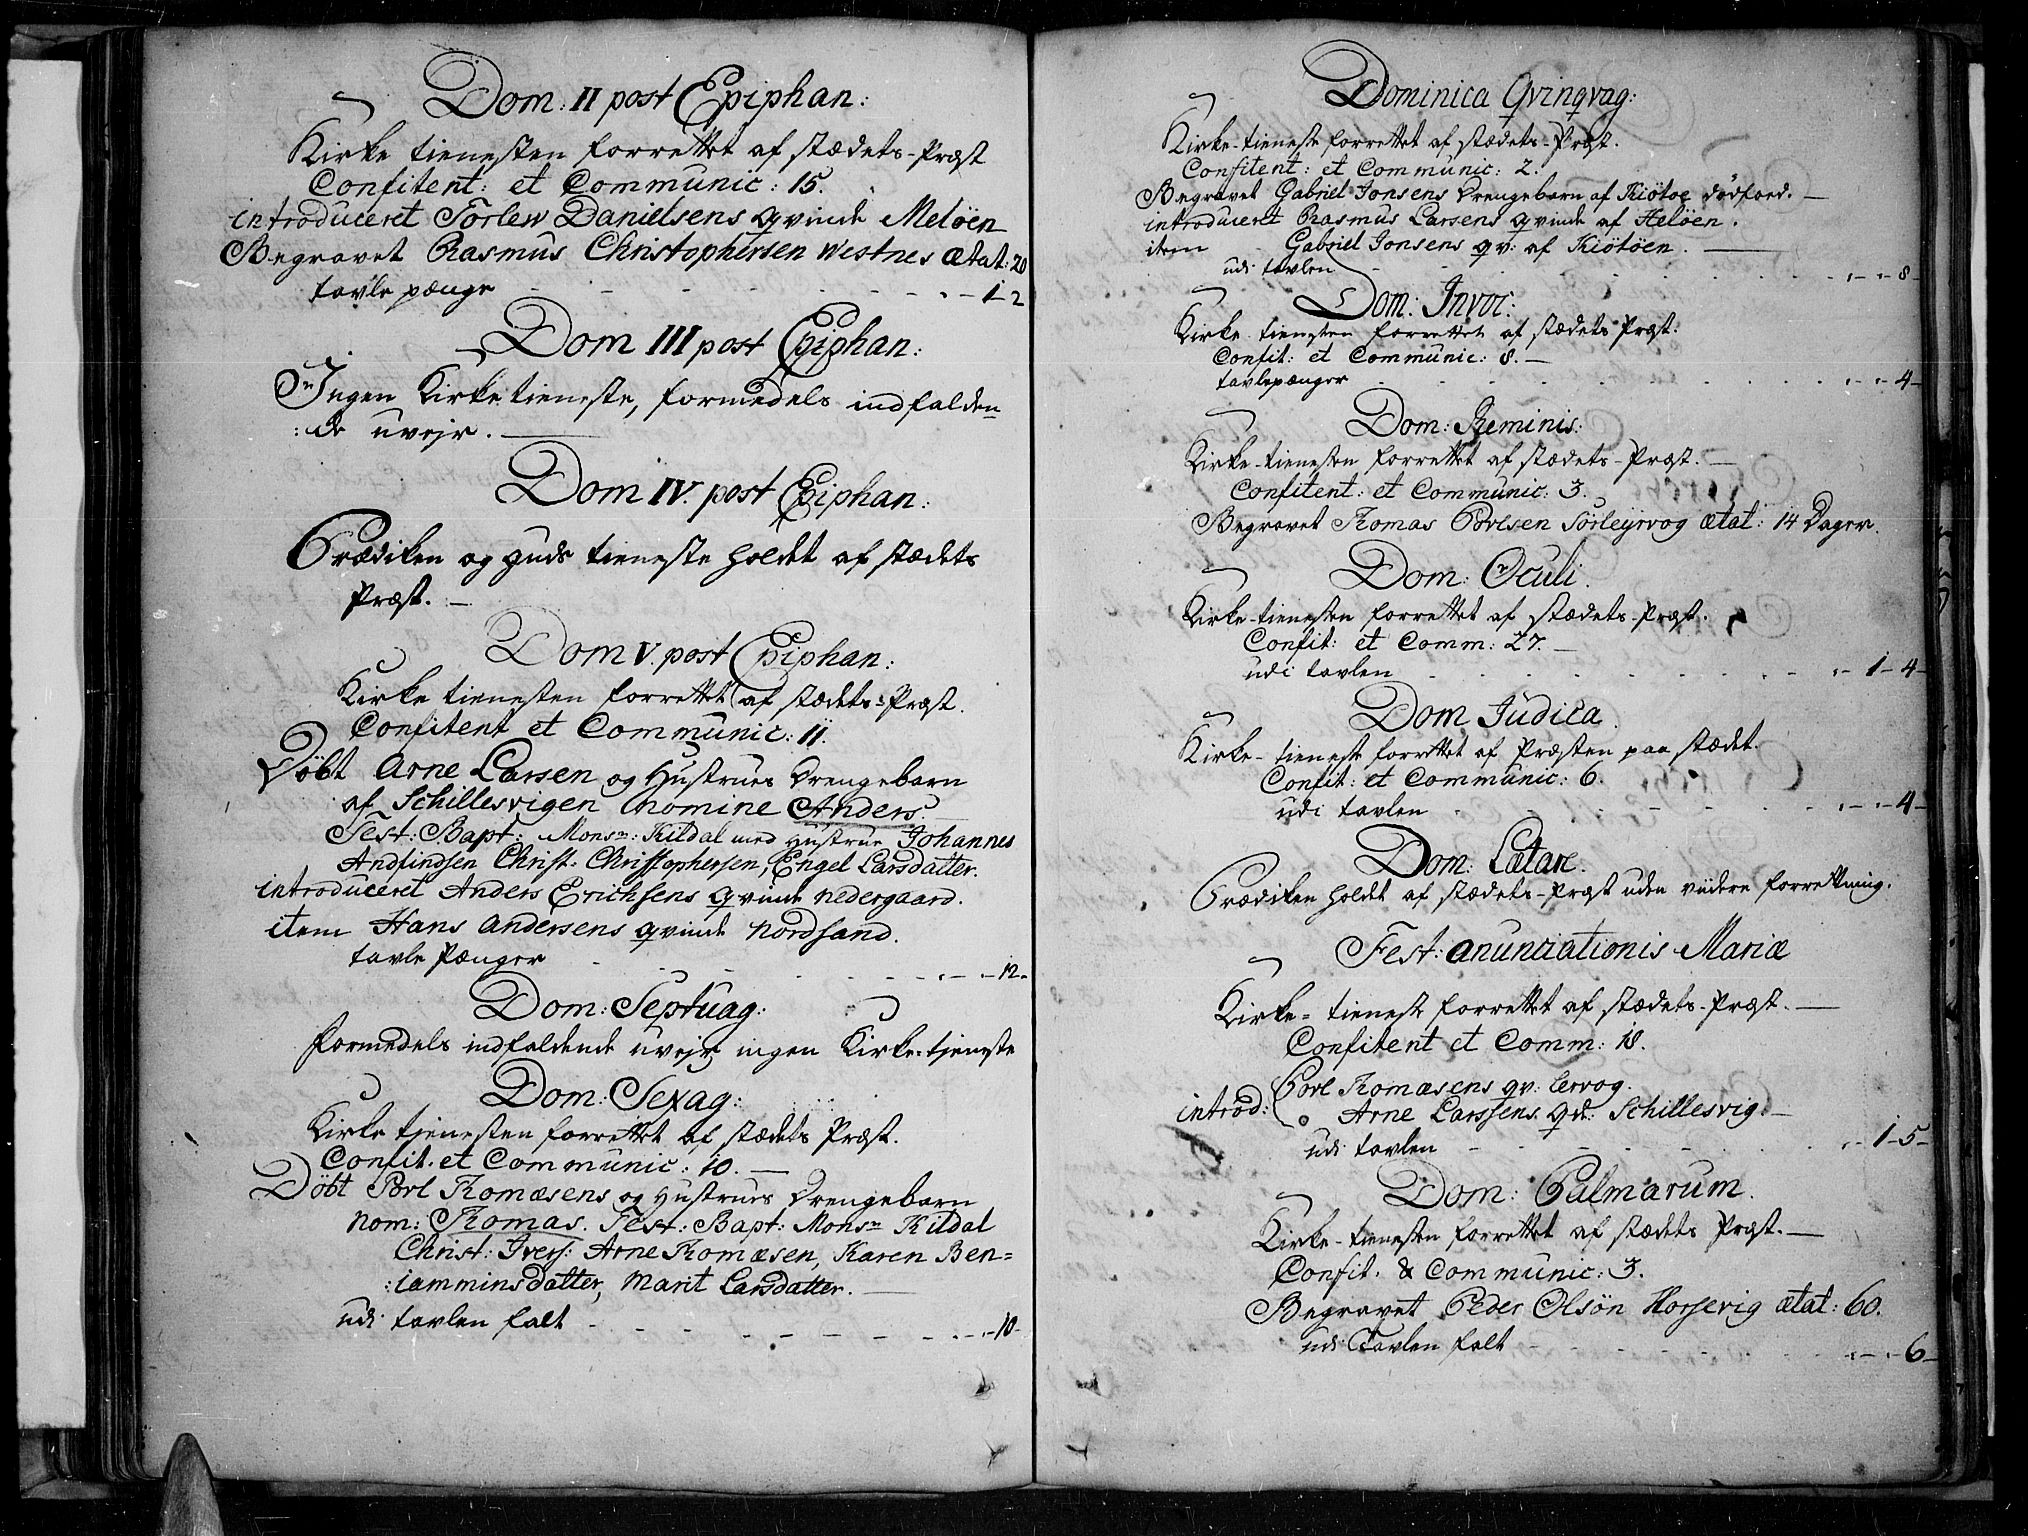 Dom: II post Epiphan:
Kirke tienesten forrettet af stædets-Præst
Confitent: et Communic: 15.
introduceret Torlew Danielsens qvinde Meløen
Begravet Rasmus Christophersen Westnes ætat: 20
tavle pænge - - - 1-2
Dom III post Epiphan:
Ingen Kirketieneste, formedels indfalden=
:de uvejr.
Dom IV. post Epiphan:
Prædiken og guds tieneste holdet af stædets
Præst.
Dom V. post Epiphan:
Kirke tienesten forrettet af stædets-Præst.
Confitent et Communic: 11.
Døbt Arne Larsen og Hustrues Drengebarn
af Schillesvigen nomine Anders.
Test: Bapt: Monsr: Kildal med Hustrue Johannes
Andfindsen Christ: Christophersen, Engel Larsdatter.
introduceret Anders Erichsens qvinde nedergaard.
item Hans Andersens qvinde Nordsand.
tavle Pænger - - - 12.
Dom: Septuag:
formedels indfaldende uvejr ingen Kirke=tjeneste
Dom: Sexag:
Kirke tjenesten forrettet af stædets Præst.
Confit. et Communic: 10.
Døbt Povl Thomæsens og Hustrues Drengebarn
Nom: Thomas. Test: Bapt: Monsr Kildal
Christ: Ivers: Arne Thomæsen, Karen Ben=
:iamminsdatter, Marit Larsdatter.
udi tavlen falt - - - 10
Dominica Qvinqvag:
Kirke-tieneste forrettet af stædets-Præst.
Confitent: et Communic: 2.
Begravet Gabriel Jonsens Drengebarn af Kiøtøe dødfoed.
introduceret Rasmus Larsens qvinde af Heløen.
item Gabriel Jonsens qv: af Kiøtøen.
udi tavlen - - - 8
Dom: Invoc:
Kirke tienesten forrettet af stædets Præst.
Confit: et Communic: 8.
tavlepænger - - - 4
Dom: Reminis:
Kirke-tienesten forrettet af stædets-Præst.
Confitent: et Communic: 3.
Begravet Thomas Povlsen ætat: 14 Dager.
Dom: Oculi.
Kirke-tienesten forrettet af stædets-Præst.
Confit: et Comm: 27.
udi tavlen - - - 1-4
Dom Judica.
Kirke-tieneste forrettet af Præsten paa stædet.
Confit: et Communic: 6.
udi tavlen - - - 4
Dom: Lætare.
Prædiken holdet af stædets-Præst uden viidere forrettning.
Fest: anunciationis Mariæ
Kirke=tieneste forrettet af stædets-Præst.
Confitent et Comm: 18.
introd: Povl Thomæsens qv: Lervog.
Arne Larssens qv: Schillesvig.
udi tavlen - - - 1-5
Dom: Palmarum.
Kirke-tienesten forrettet af stædets Præst.
Confit. & Communic: 3.
Begravet Peder Olsøn Horsevig ætat: 60.
udi Tavlen falt - - - 6